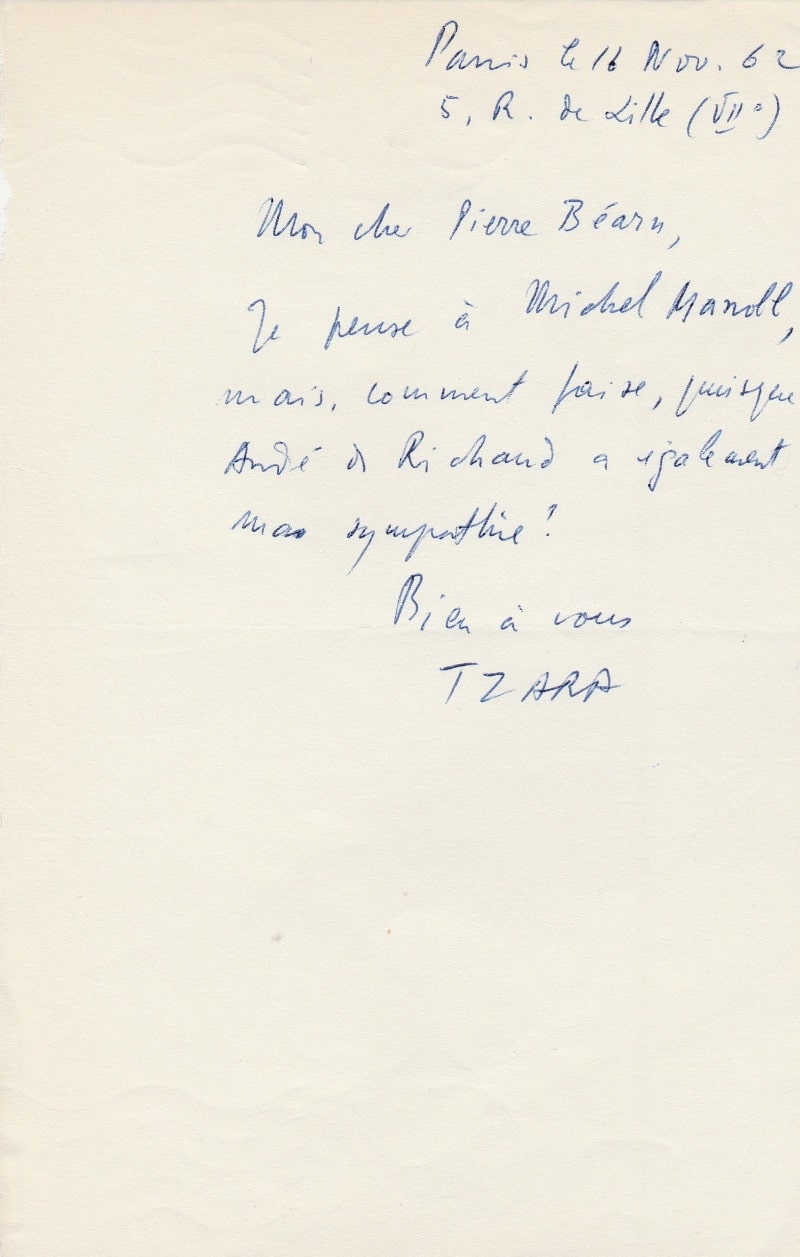 Paris le 16 Nov. 62
5, R. de Lille (VIIe)
Mon cher Pierre Béarn,
Je pense à Michel Manoll,
mais, comment faire, puisque
André de Richaud a également
ma sympathie?
Bien à vous
TZARA